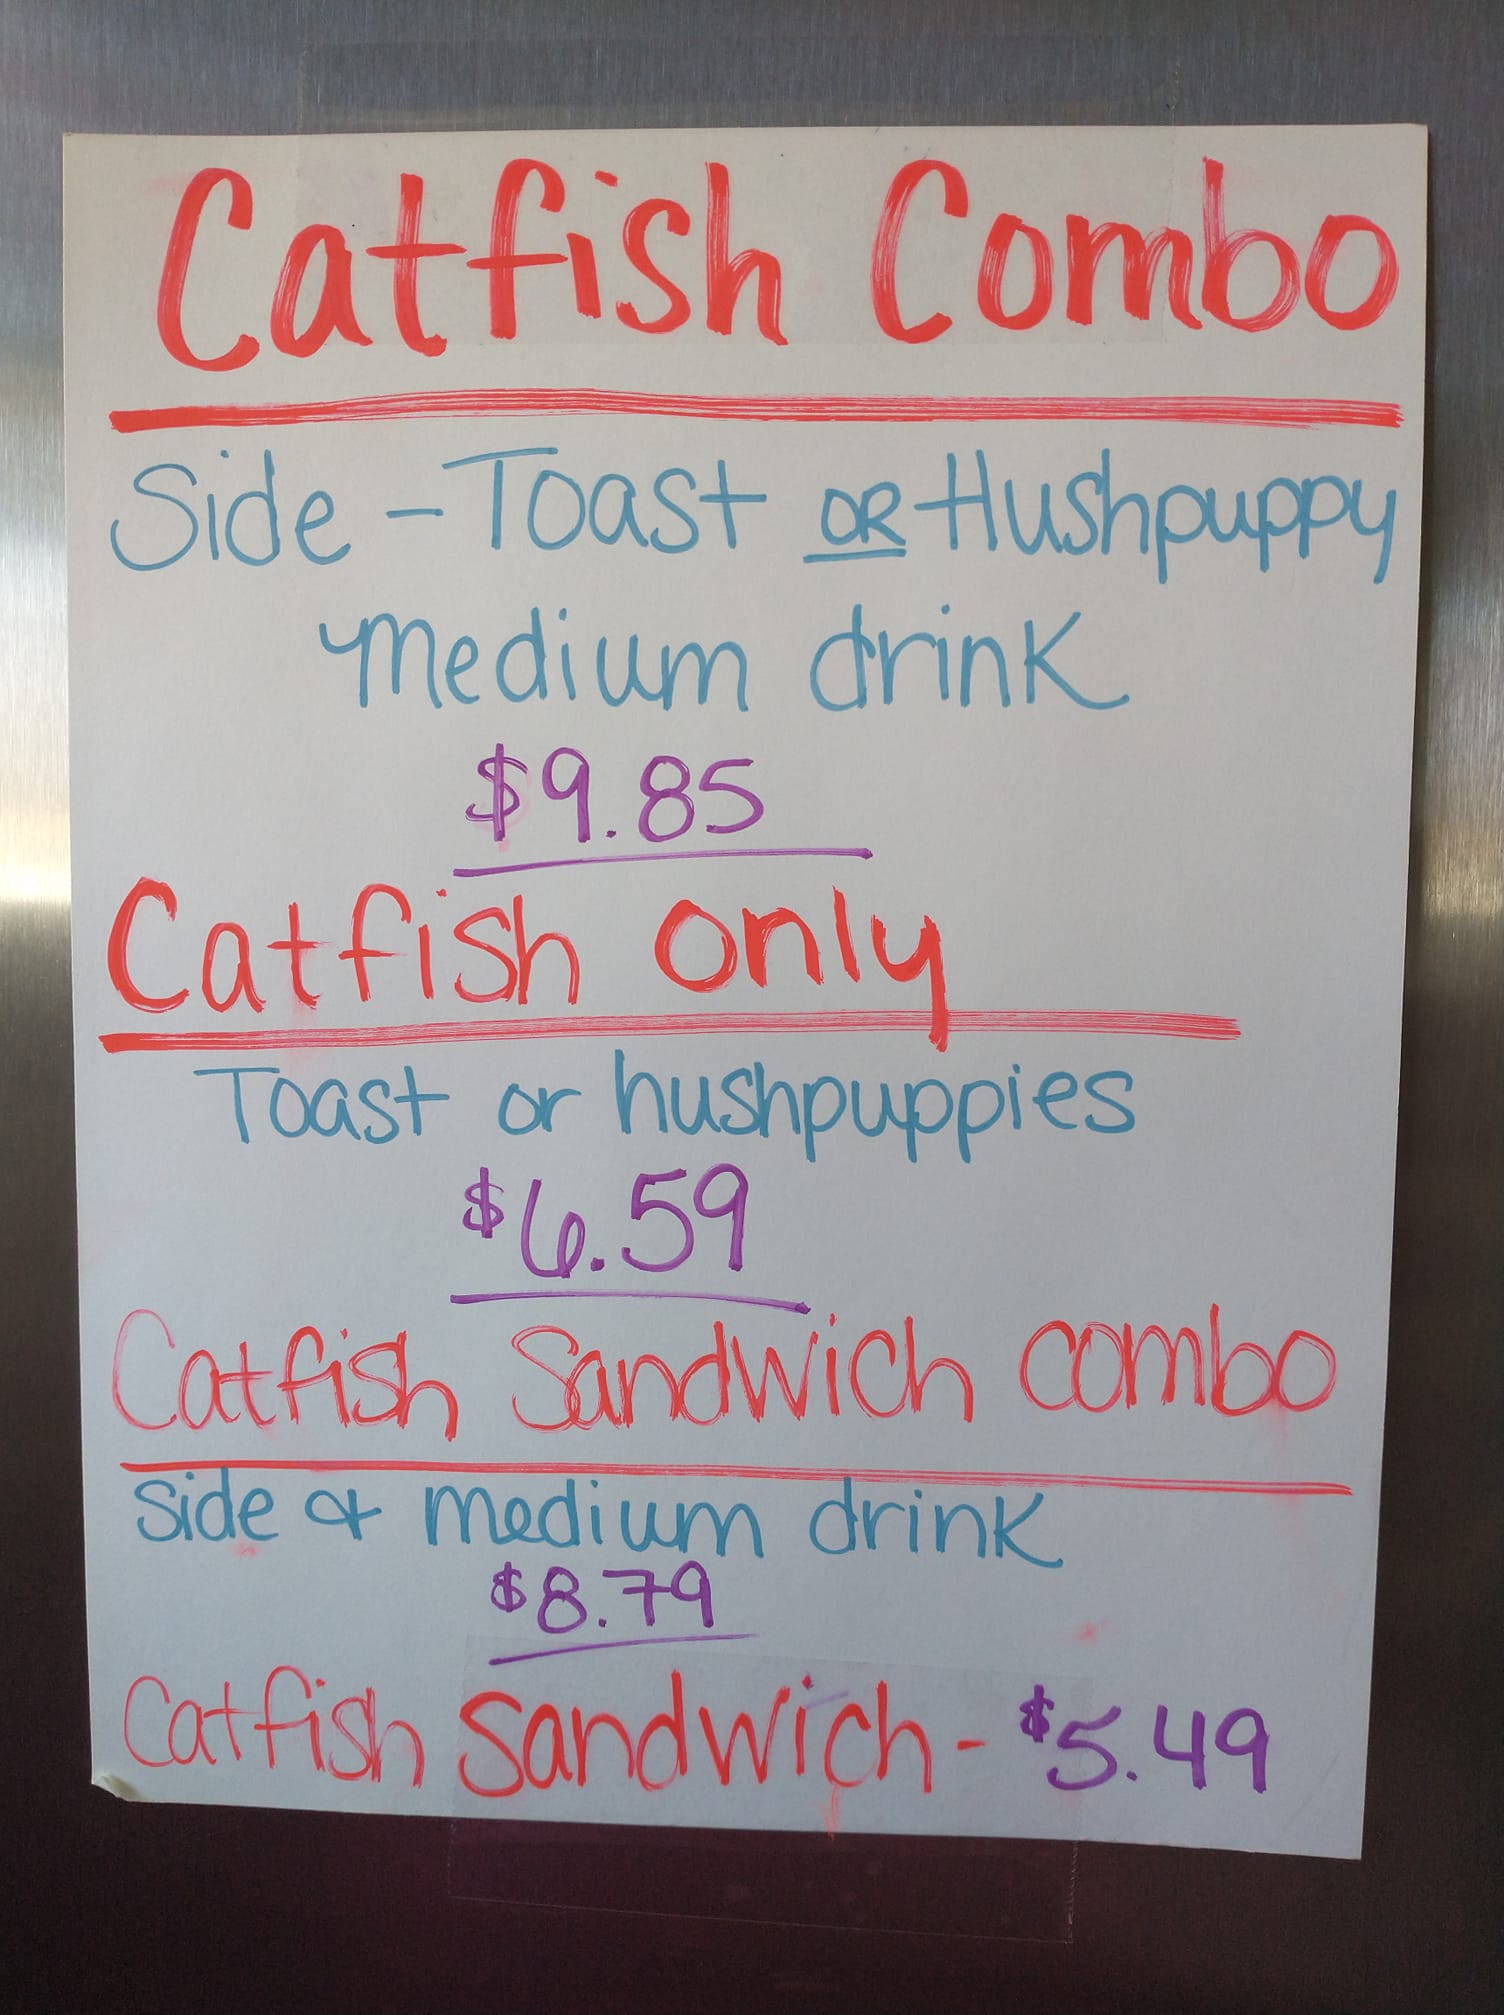 Catfish Combo
Side - Toast OR Hushpuppy
Medium drink
$9.85
Catfish only
Toast or hushpuppies
$6.59
Catfish Sandwich combo
Side & medium drink
$8.79
Catfish Sandwich - $5.49